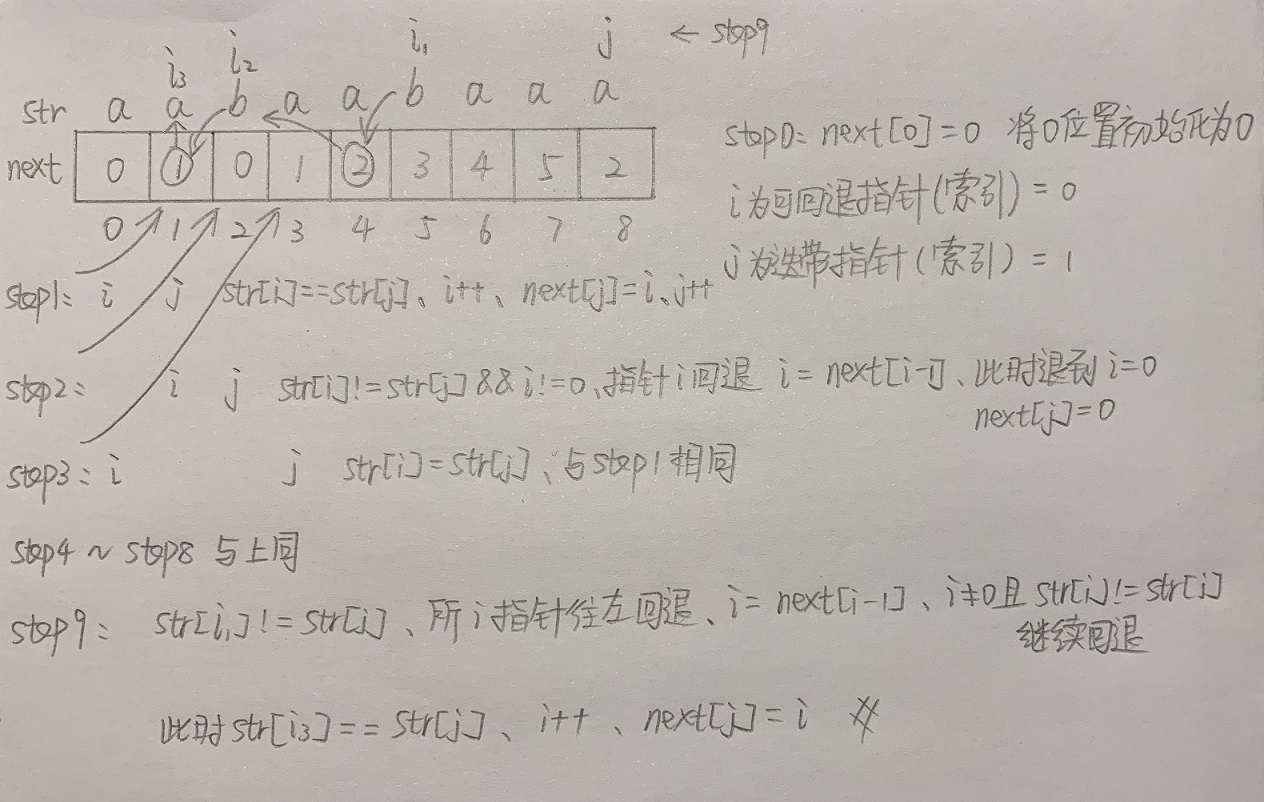 i₁ j ← step9
i₃ i₂
str a a b a a b a a a
next 0 1 0 1 2 3 4 5 2
0 1 2 3 4 5 6 7 8
step0: next[0]=0 将0位置初始化为0
i为可回退指针(索引) = 0
j为迭带指针(索引) = 1
step1: i j str[i]==str[j]、i++、next[j]=i、j++
step2: i j str[i]!=str[j]&&i!=0、指针i回退 i = next[i-1]、此时退到i=0
next[j]=0
step3: i j str[i]=str[j]、与step1相同
step4 ~ step8 与上同
step9: str[i₁]!=str[j]、所i指针往左回退、i= next[i-1]、i≠0且str[i]!=str[j]
继续回退
此时str[i₃]== str[j]、i++、next[j]=i